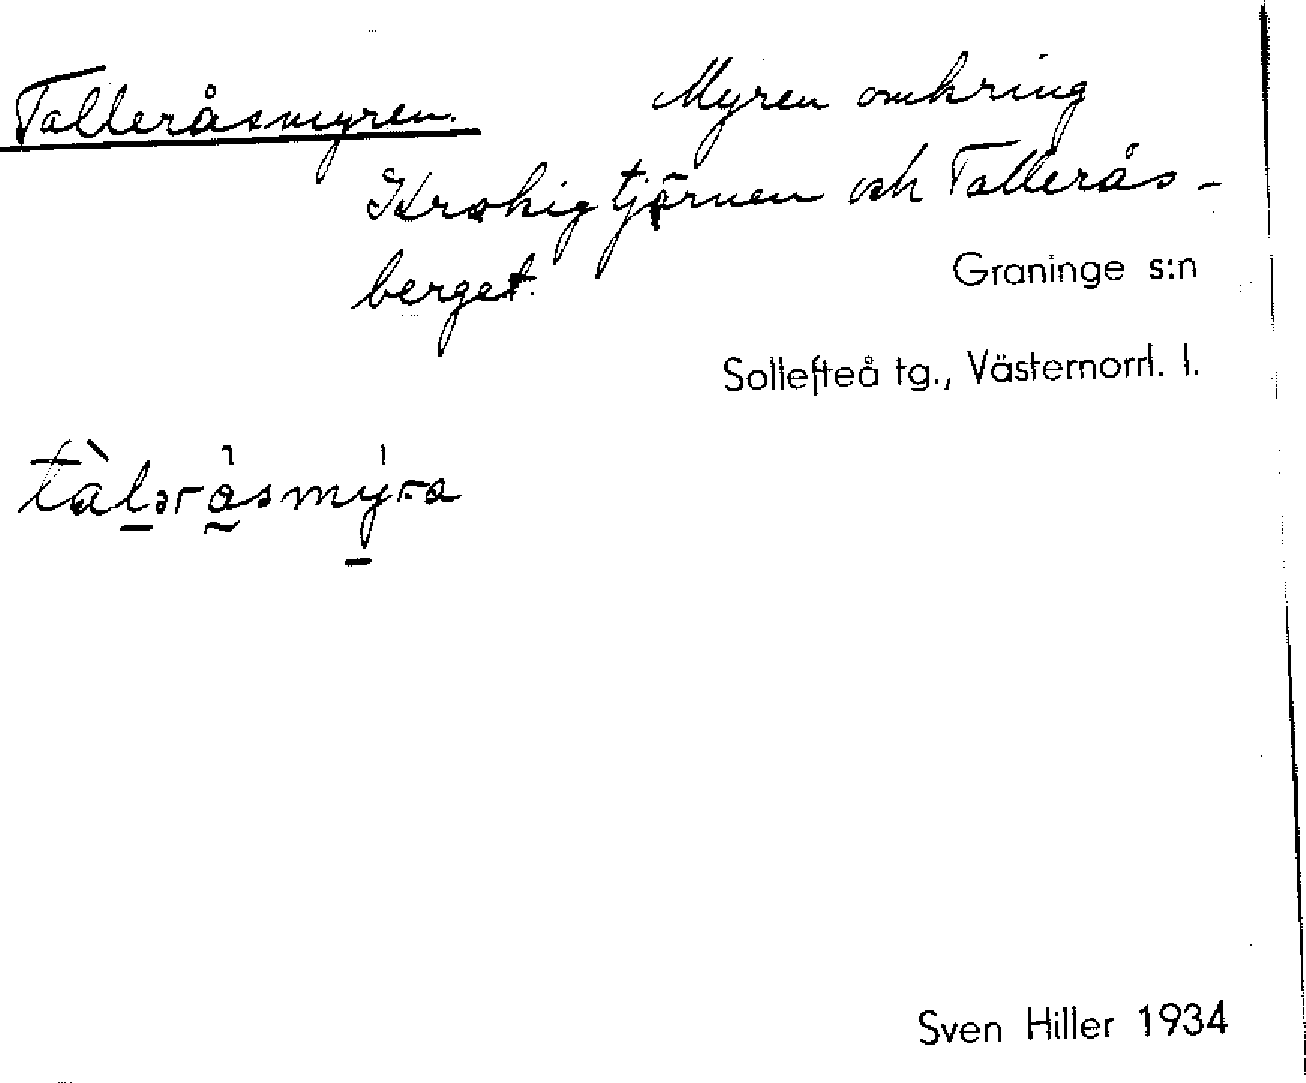 Talleråsmyren. Myren omkring
Krokigtjärnen och Tallerås-
berget.
Graninge s:n
Sollefteå tg., Västernorrl. l.
tàləråsmyra
Sven Hiller 1934